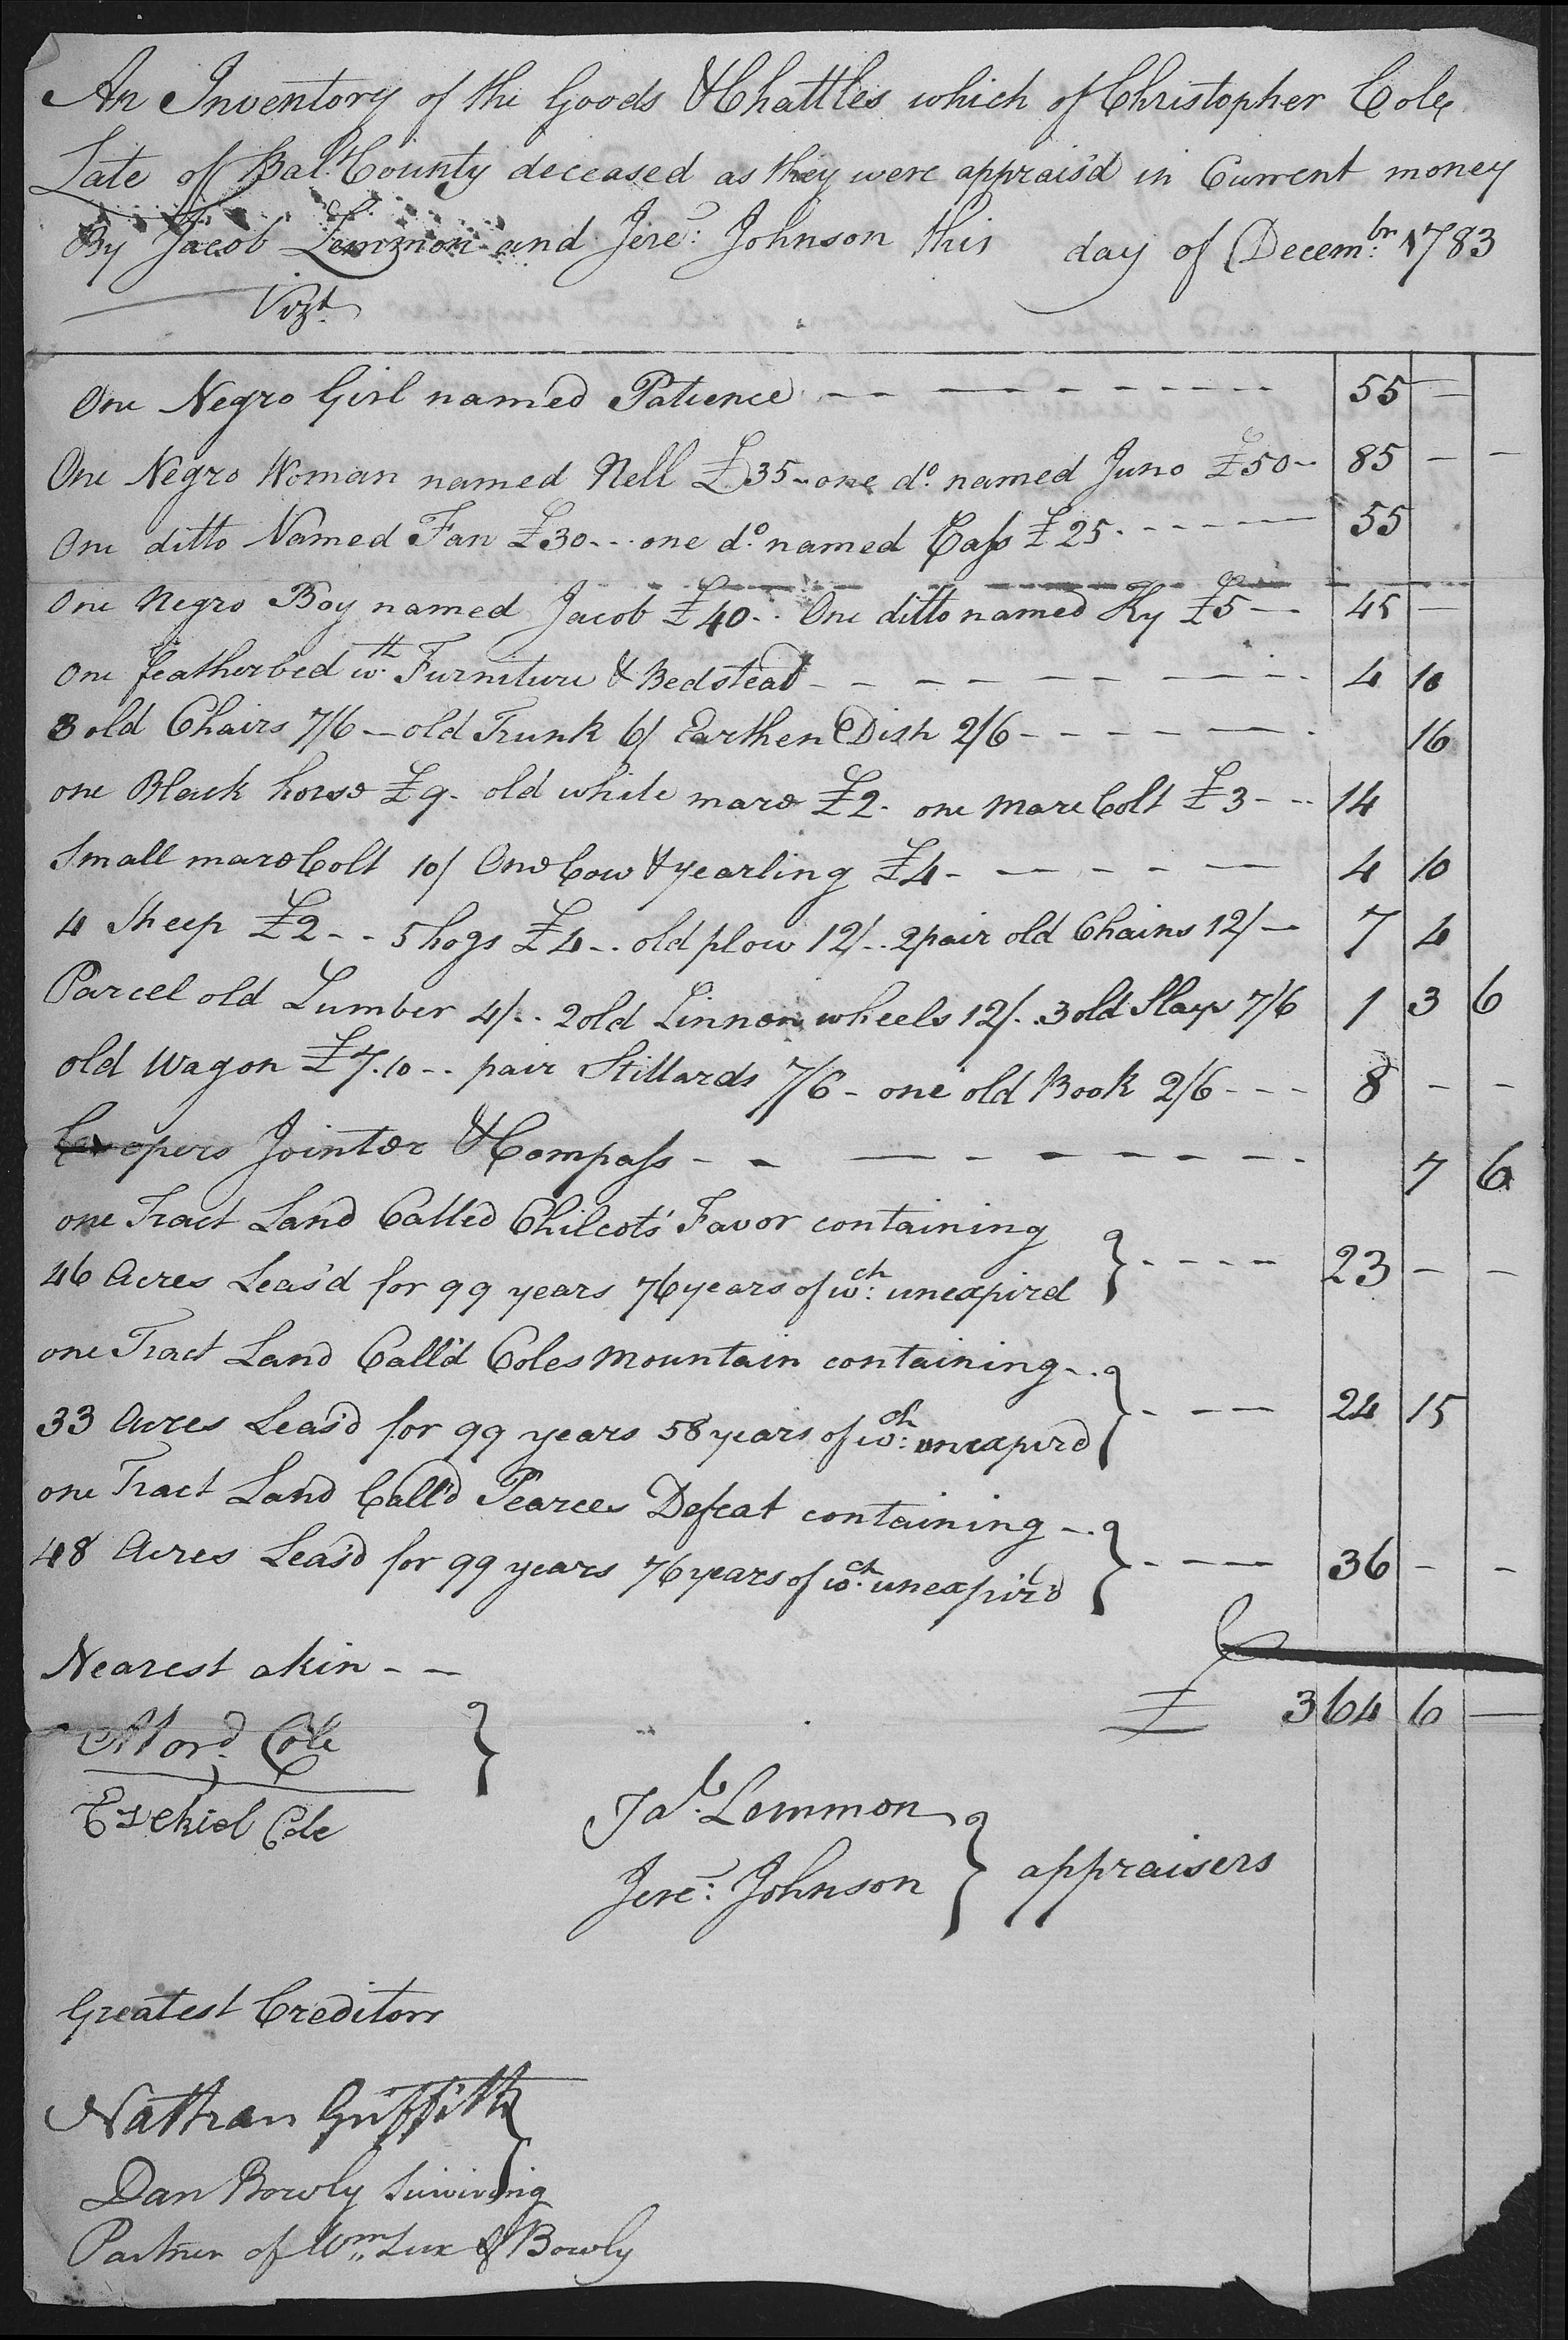 An Inventory of the Goods & Chattles which of Christopher Cole
Late of Bal.t County deceased as they were apprais'd in Current money
By Jacob Lemmon and Jere: Johnson this day of Decem.br 1783
Vizt
One Negro Girl named Patience - - - - - - - - 55 —
One Negro Woman named Nell £35 - one do. named Juno £50 - 85 - -
One ditto Named Fan £30 - - one do. named Cass £25 - - - - - 55
One Negro Boy named Jacob £40 - - One ditto named Ky £5 — 45 —
One featherbed w.th Furniture & Bedstead - - - - - - - - 4 10
3 old Chairs 7/6 — old Trunk 6/ Earthen Dish 2/6 - - - - - - 16
one Black horse £9 - old white mare £2 - one mare Colt £3 - - 14
Small mare Colt 10/ One Cow & yearling £4 - - - - - 4 10
4 Sheep £2 - - 5 hogs £4 - - old plow 12/ - - 2 pair old Chains 12/ — 7 4
Parcel old Lumber 4/ - - 2 old Linnen wheels 12/ - 3 old Slays 7/6 1 3 6
old Wagon £7.10 - - pair Stillards 7/6 - one old Book 2/6 - - - 8 - -
Coopers Jointer & Compass - - - - - - - - - 7 6
one Tract Land Called Chilcots' Favor containing
46 Acres Leas'd for 99 years 76 years of w.ch unexpired } - - - - 23 - -
one Tract Land Call'd Coles Mountain containing - -
33 Acres Leas'd for 99 years 58 years of w.ch unexpired } - - - 24 15
one Tract Land Call'd Pearces Defeat containing - -
48 Acres Leas'd for 99 years 76 years of w.ch unexpir'd } - - - 36 - -
Nearest akin - -
£ 364 6 —
Mord. Cole }
Ezekiel Cole
Jab. Lemmon
Jere: Johnson } appraisers
Greatest Creditors
Nathan Griffith }
Dan Bowly Surviving
Partner of Wm. Lux & Bowly